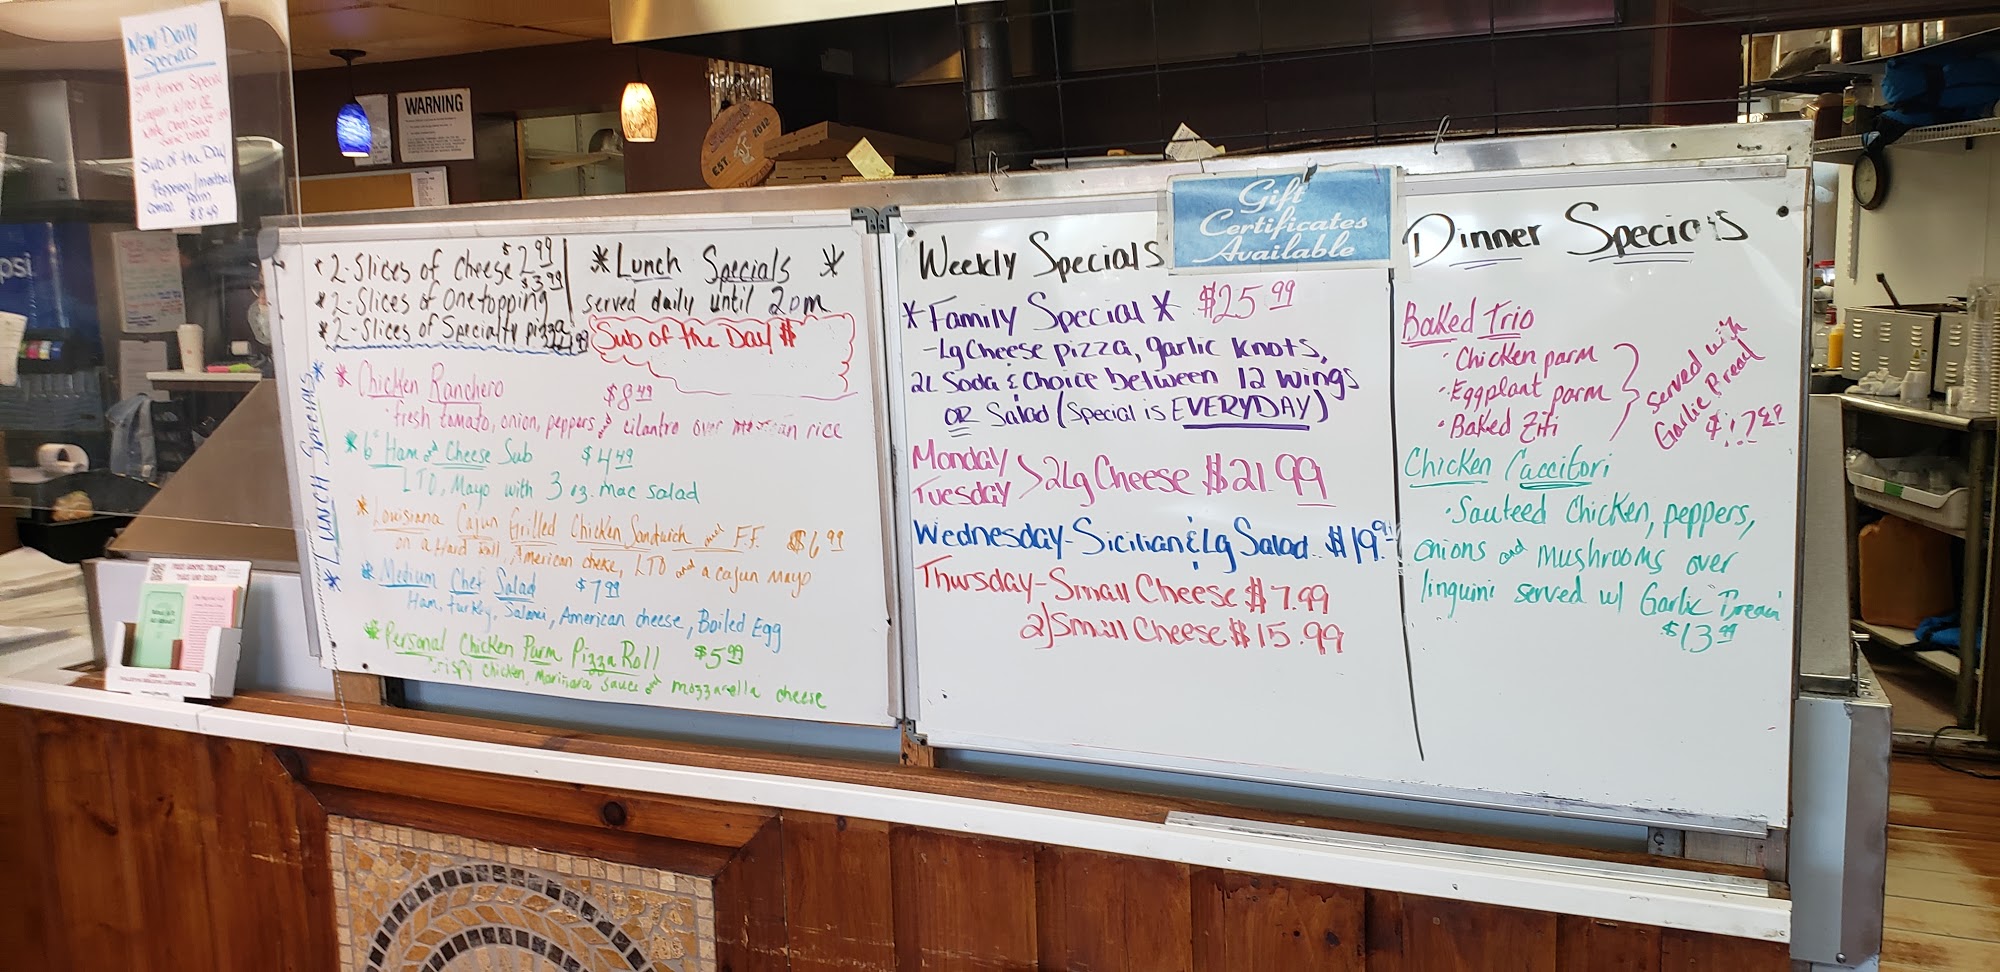 NEW Daily
Specials
Dinner Special
Sub of the Day
$8.49
WARNING
EST 2012
psi
* 2-Slices of Cheese $2.99
* 2-Slices of One topping $3.99
* 2-Slices of Specialty pizza
* Lunch Specials *
served daily until 2pm
Sub of the Day $
* LUNCH SPECIALS *
* Chicken Ranchero $8.49
fresh tomato, onion, peppers and cilantro over mexican rice
* 6" Ham and Cheese Sub $4.49
LTO, Mayo with 3 oz. mac salad
* Louisiana Cajun Grilled Chicken Sandwich and F.F. $6.99
on a Hard Roll, American cheese, LTO and a cajun mayo
* Medium Chef Salad $7.99
Ham, turkey, Salami, American cheese, Boiled Egg
* Personal Chicken Parm Pizza Roll $5.99
crispy chicken, marinara sauce and mozzarella cheese
Weekly Specials
Gift
Certificates
Available
* Family Special * $25.99
- Lg Cheese pizza, garlic knots,
2L Soda & Choice between 12 wings
OR Salad (Special is EVERYDAY)
Monday
Tuesday > 2 Lg Cheese $21.99
Wednesday - Sicilian & Lg Salad $19.9
Thursday - Small Cheese $7.99
2) Small Cheese $15.99
Dinner Specials
Baked Trio
· Chicken parm
· Eggplant parm
· Baked Ziti
served with
Garlic Bread
Chicken Caccitori
· Sauteed Chicken, peppers,
onions and mushrooms over
linguini served w/ Garlic Bread
$13.99